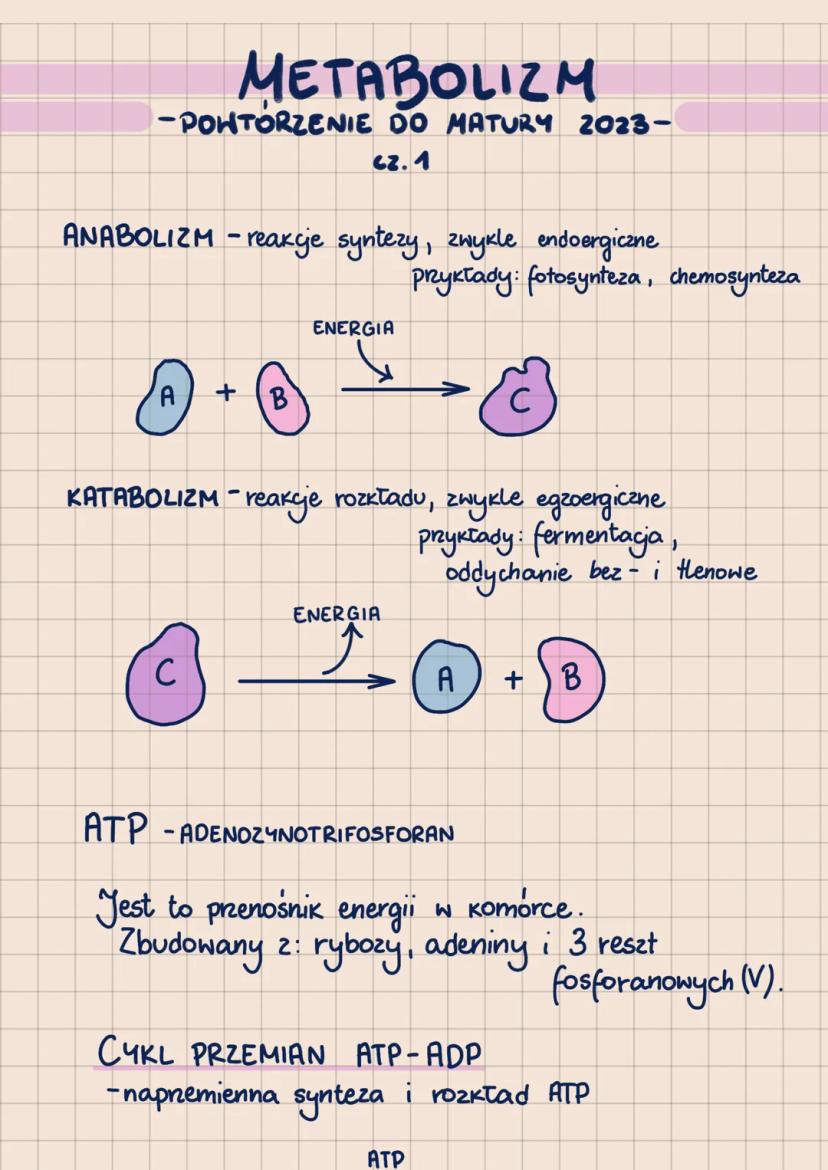 METABOLIZM
-POWTÓRZENIE DO MATURY 2023-
cz. 1
ANABOLIZM - reakcje syntezy, zwykle endoergiczne
przykłady: fotosynteza, chemosynteza
ENERGIA
A + B C
KATABOLIZM - reakcje rozkładu, zwykle egzoergiczne
przykłady: fermentacja,
oddychanie bez- i tlenowe
ENERGIA
C A + B
ATP - ADENOZYNOTRIFOSFORAN
Jest to przenośnik energii w komórce.
Zbudowany z: rybozy, adeniny i 3 reszt
fosforanowych (V).
CYKL PRZEMIAN ATP-ADP
-naprzemienna synteza i rozkład ATP
ATP